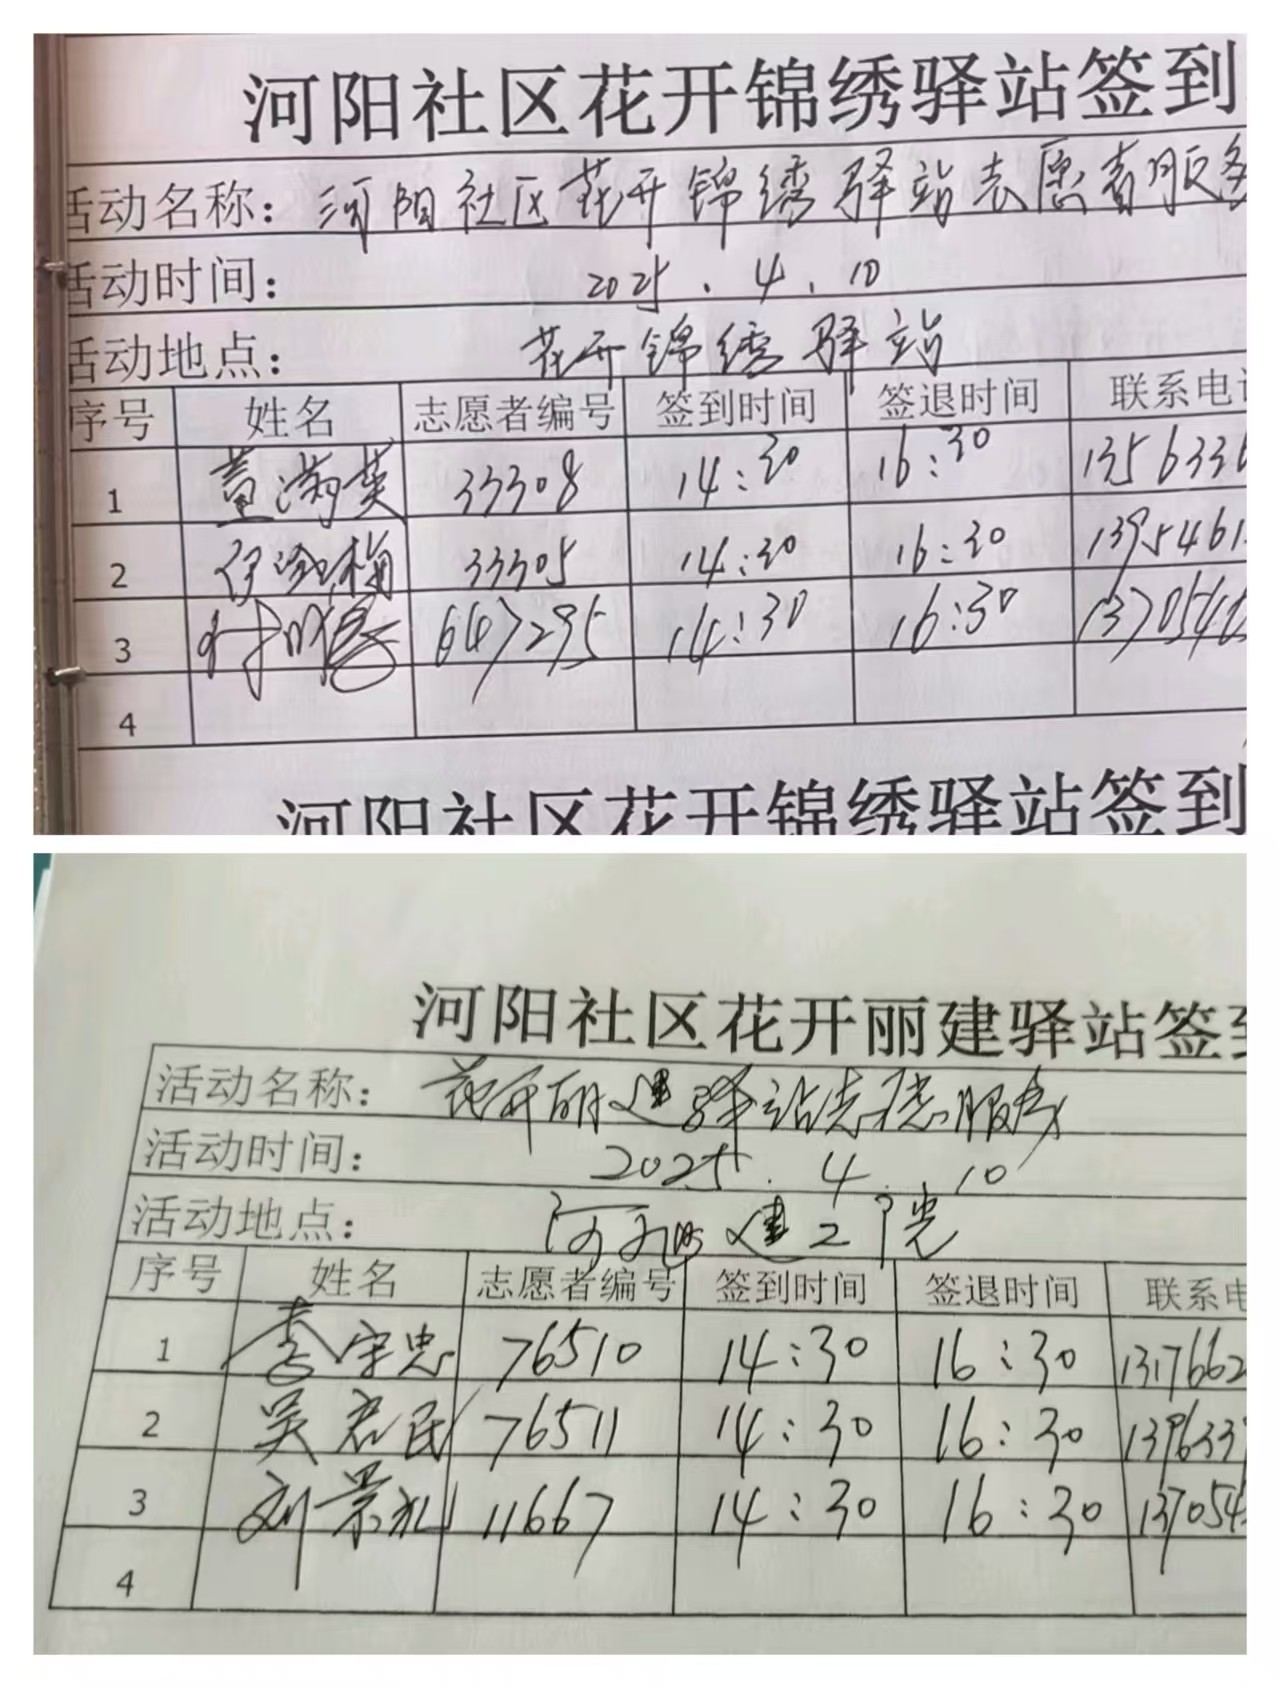 河阳社区花开锦绣驿站签到
活动名称：河阳社区花开锦绣驿站志愿者服务
活动时间：2025.4.10
活动地点：花开锦绣驿站
序号 姓名 志愿者编号 签到时间 签退时间 联系电话
1 董满英 33308 14:30 16:30 1356336
2 33305 14:30 16:30 1395461
3 647295 14:30 16:30 137054
4
河阳社区花开锦绣驿站签到
河阳社区花开丽建驿站签到
活动名称：花开丽建驿站志愿服务
活动时间：2025.4.10
活动地点：河阳建工院
序号 姓名 志愿者编号 签到时间 签退时间 联系电
1 李守忠 76510 14:30 16:30 1317662
2 吴君民 76511 14:30 16:30 139633
3 刘景礼 11667 14:30 16:30 137054
4